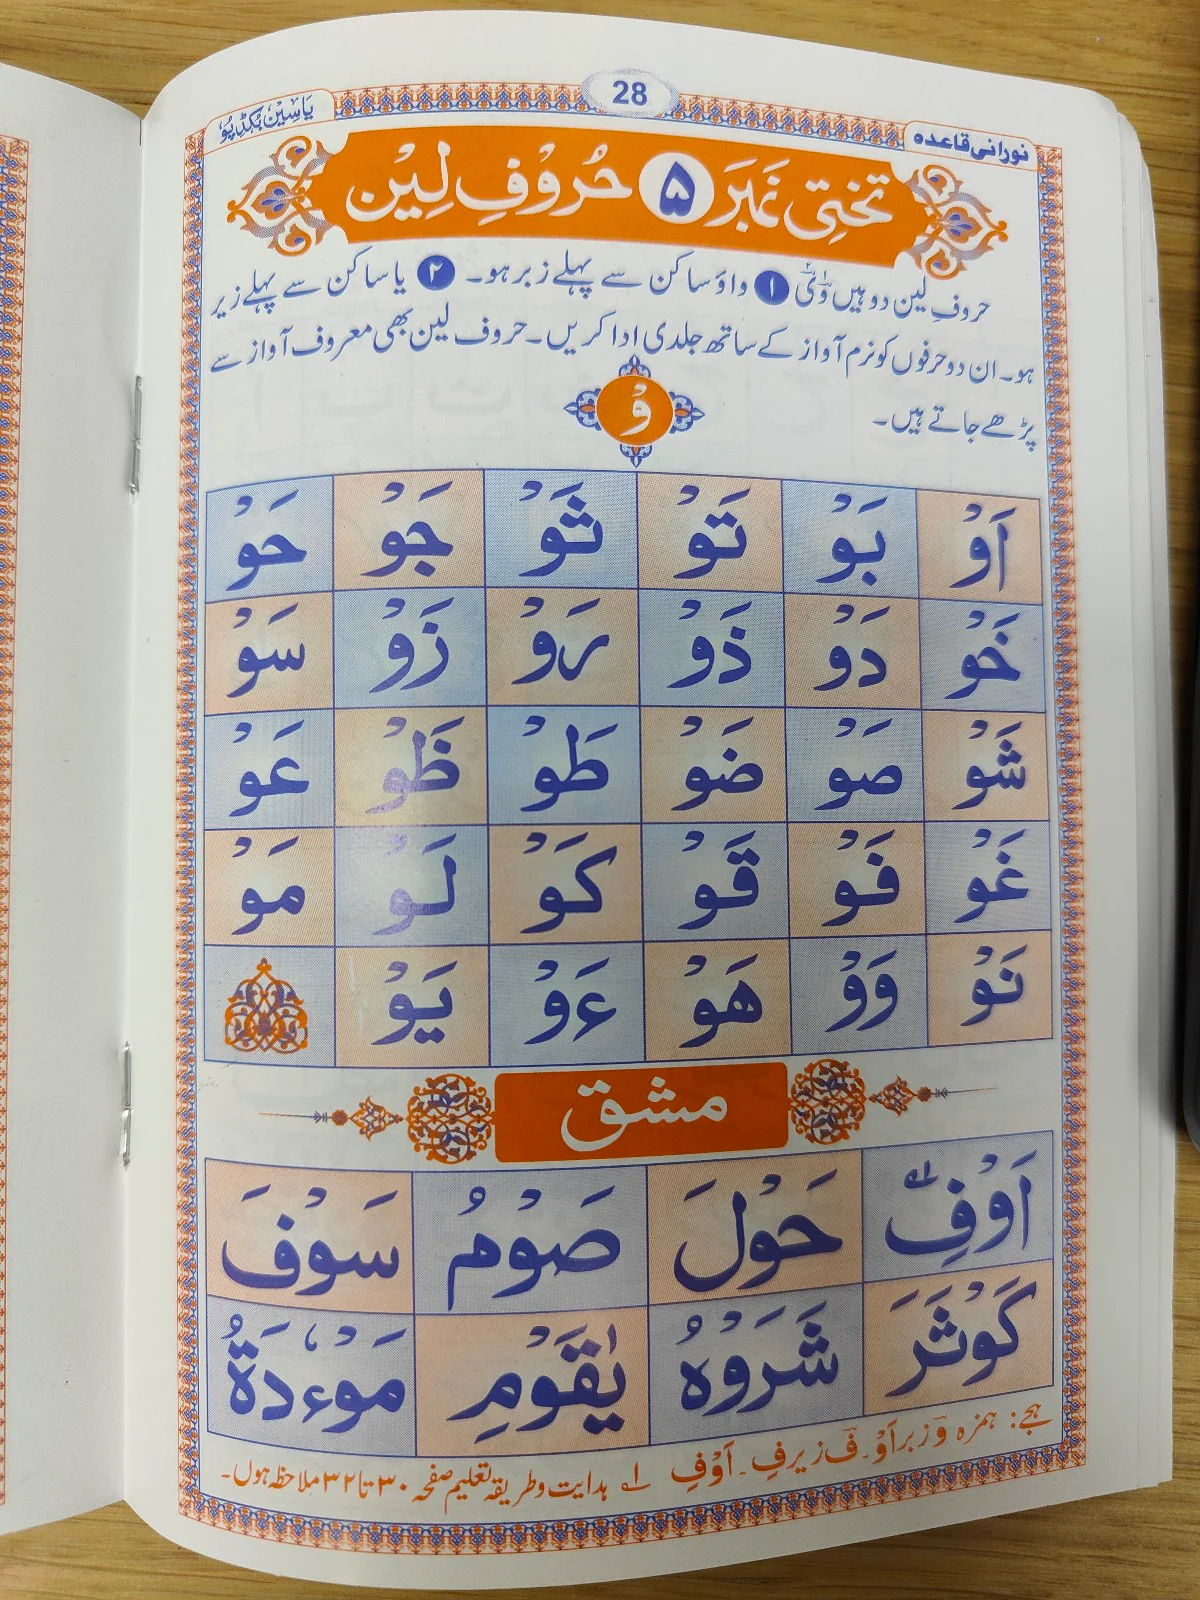 نورانی قاعدہ 28 یاسین بکڈپو
تختی نمبر ۵ حُروْفِ لِیْن
حروفِ لین دو ہیں وْ یْ ۱ واؤ ساکن سے پہلے زبر ہو۔ ۲ یا ساکن سے پہلے زبر
ہو۔ ان دو حرفوں کو نرم آواز کے ساتھ جلدی ادا کریں۔ حروف لین بھی معروف آواز سے
پڑھے جاتے ہیں۔
وْ
اَوْ بَوْ تَوْ ثَوْ جَوْ حَوْ
خَوْ دَوْ ذَوْ رَوْ زَوْ سَوْ
شَوْ صَوْ ضَوْ طَوْ ظَوْ عَوْ
غَوْ فَوْ قَوْ كَوْ لَوْ مَوْ
نَوْ وَوْ هَوْ ءَوْ يَوْ
مشق
اَوْفِ لہ حَوْلَ صَوْمُ سَوْفَ
كَوْثَرَ شَرَوْهُ يٰقَوْمِ مَوْءٗدَةُ
ہجے: ہمزہ وْ زبر اَوْ۔ فَ زیر فِ۔ اَوْفِ لہ ہدایت و طریقہ تعلیم صفحہ ۳۰ تا ۳۲ ملاحظہ ہوں۔